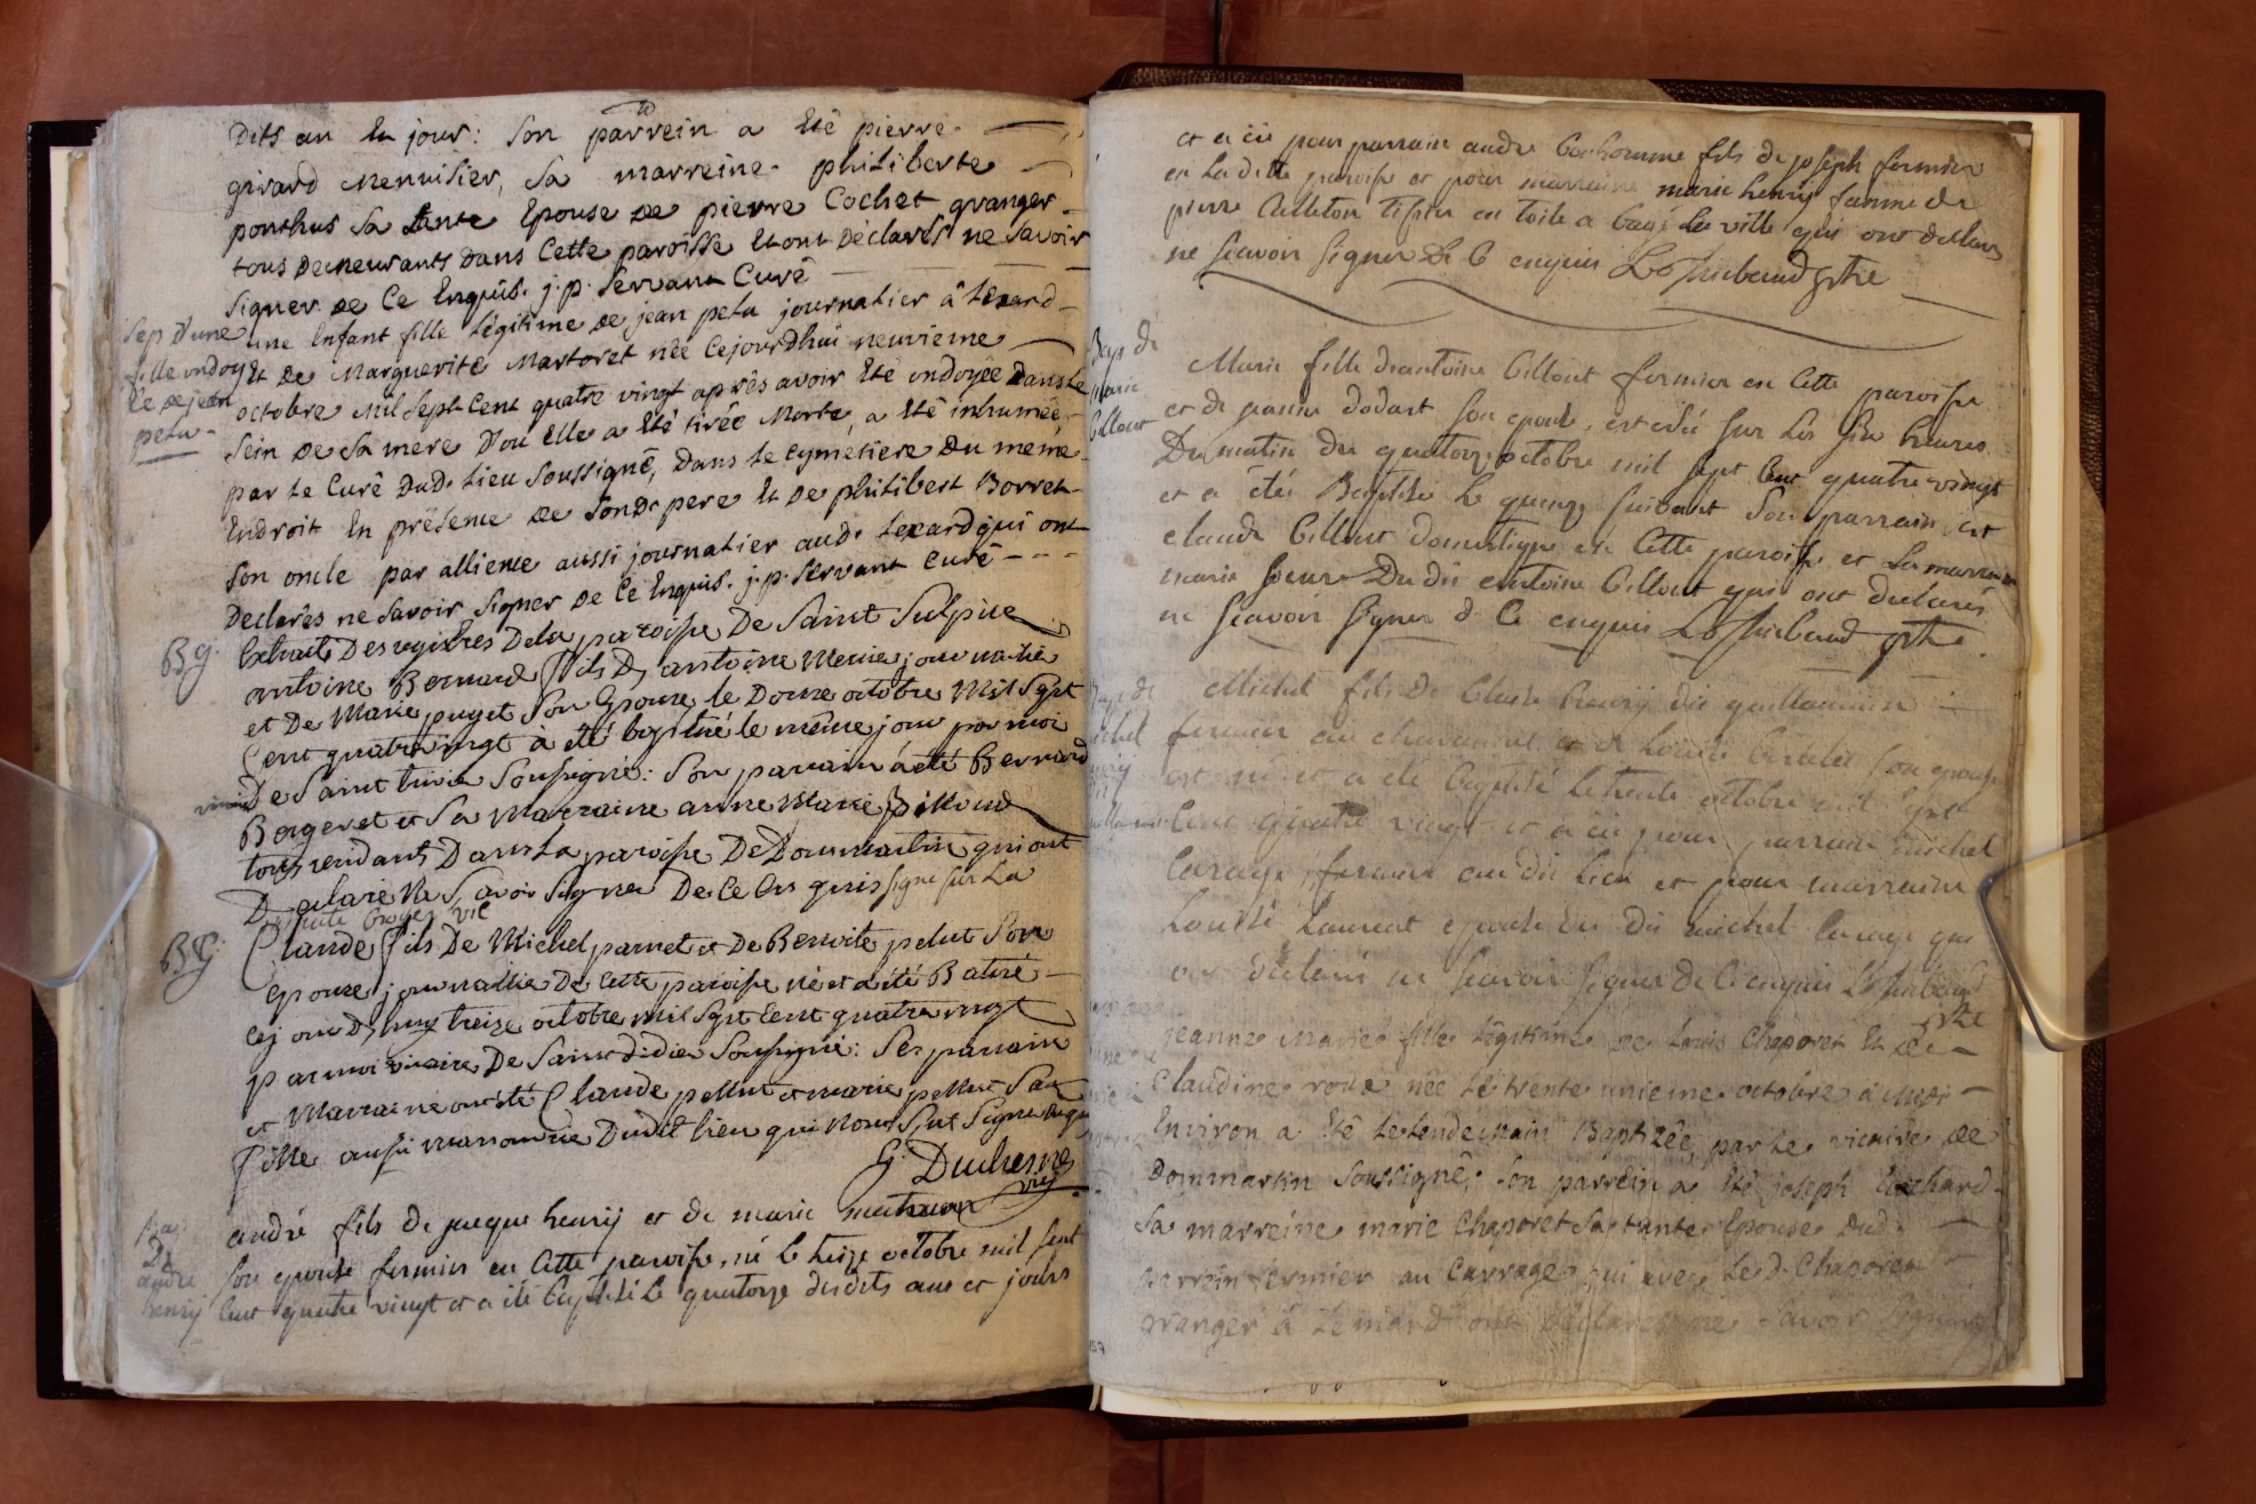 Dits an Et jour: Son parrein a Eté pierre
girard Menuisier, Sa marreine philiberte
ponthus Sa tante Epouse de pierre Cochet granger
tous Demeurants Dans Cette paroisse Et ont Déclarés ne Savoir
Signer De Ce Enquis. j. p. Servant Curé
Sep D'une
fille ondoy
ée de jean
petu
une Enfant fille Légitime de jean petu journalier à
Et De Marguerite Martoret née Cejourdhui neuvieme
octobre Mil Sept Cent quatre vingt après avoir Eté ondoyée Dans le
Sein De Sa mere D'ou Elle a Eté tirée Morte, a Eté inhumée
par le Curé Dud. Lieu Soussigné, Dans le Cymetiere Du meme
Endroit En présence De Sond. pere Et De philibert Borret
Son oncle par allience aussi journalier aud. qui ont
Déclarés ne Savoir Signer De Ce Enquis. j. p. Servant Curé
Bg.
Extraits Des registres De la paroisse De Saint Sulpice
antoine Bernard fils D antoine Mercier journalier
et De Marie puget Son Epouse, le Douze octobre Mil Sept
Cent quatre vingt à été baptisé le même jour par moi
vicaire De Saint Soussigné: Son parrain à été Bernard
Bergeret et Sa Marraine anne Marie pilloud
tous residants Dans la paroisse De Dommartin qui ont
Declaré Ne Savoir Signer De Ce En quis signé sur La
minute vic
Bg.
Claude fils De Michel parnet et De Benoite pelut Son
Epouse, journallier De Cette paroisse né et a été Batisé
cejourd'huy treize octobre mil Sept Cent quatre vingt
par moi vicaire De Saint didier Soussigné: Ses parrain
et Marraine ont été Claude pellut et marie pellut Sa
fille aussi Dudit lieu qui Nont Sçut Signer
G. Duchesne
vic
Bap
De
andré
henrij
andré fils de jacque henrij et de marie
Son epouse fermier en Cette paroisse, né le treize octobre mil Sept
Cent quatre vingt et a été baptisé le quatorze desdits ans et jours
et a eû pour parrain andré bonhomme fils de joseph fermier
en La ditte paroisse et pour marraine marie henrij femme de
pierre Alleton tissier en toile a bagé La ville qui ont declaré
ne Scavoir Signer De C enquis Lo Thiebaud ptre
Bap. de
Marie
Billout
Marie fille d'antoine Billout fermier en Cette paroisse
et de jeanne dodart Son epouse, est née sur les Six heures
Du matin du quatorze octobre mil Sept Cent quatre vingt
et a été Baptisée le quinze Suivant Son parrain est
claude Billout domestique en Cette paroisse et La marreine
marie Soeur Du dit antoine Billout qui ont declarés
ne Scavoir Signer d Ce enquis Lo Thiebaud ptre
Michel fils De Claude henrij dit guillaumin
fermier au et de Louise Son epouse
est né et a été baptisé le trente octobre mil Sept
Cent quatre vingt et a eû pour parrain michel
Carage, fermier au dit Lieu et pour marraine
Louise Laurent epouse du dit michel Carage qui
ont declaré ne Scavoir Signer de Ce enquis Lo Thiebaud
ptre
jeanne Marie fille Légitime de Louis Chaporet Et de
Claudine née le trente unieme octobre à Midi
Environ a Eté le Lendemain Baptizée, par le vicaire de
Dommartin Soussigné; Son parrein a Eté joseph
Sa marreine marie Chaporet Sa tante Epouse Dud.
parrein fermier au Carrage qui avec Led. Chaporet
granger à ont Déclarés ne Savoir Signer
157